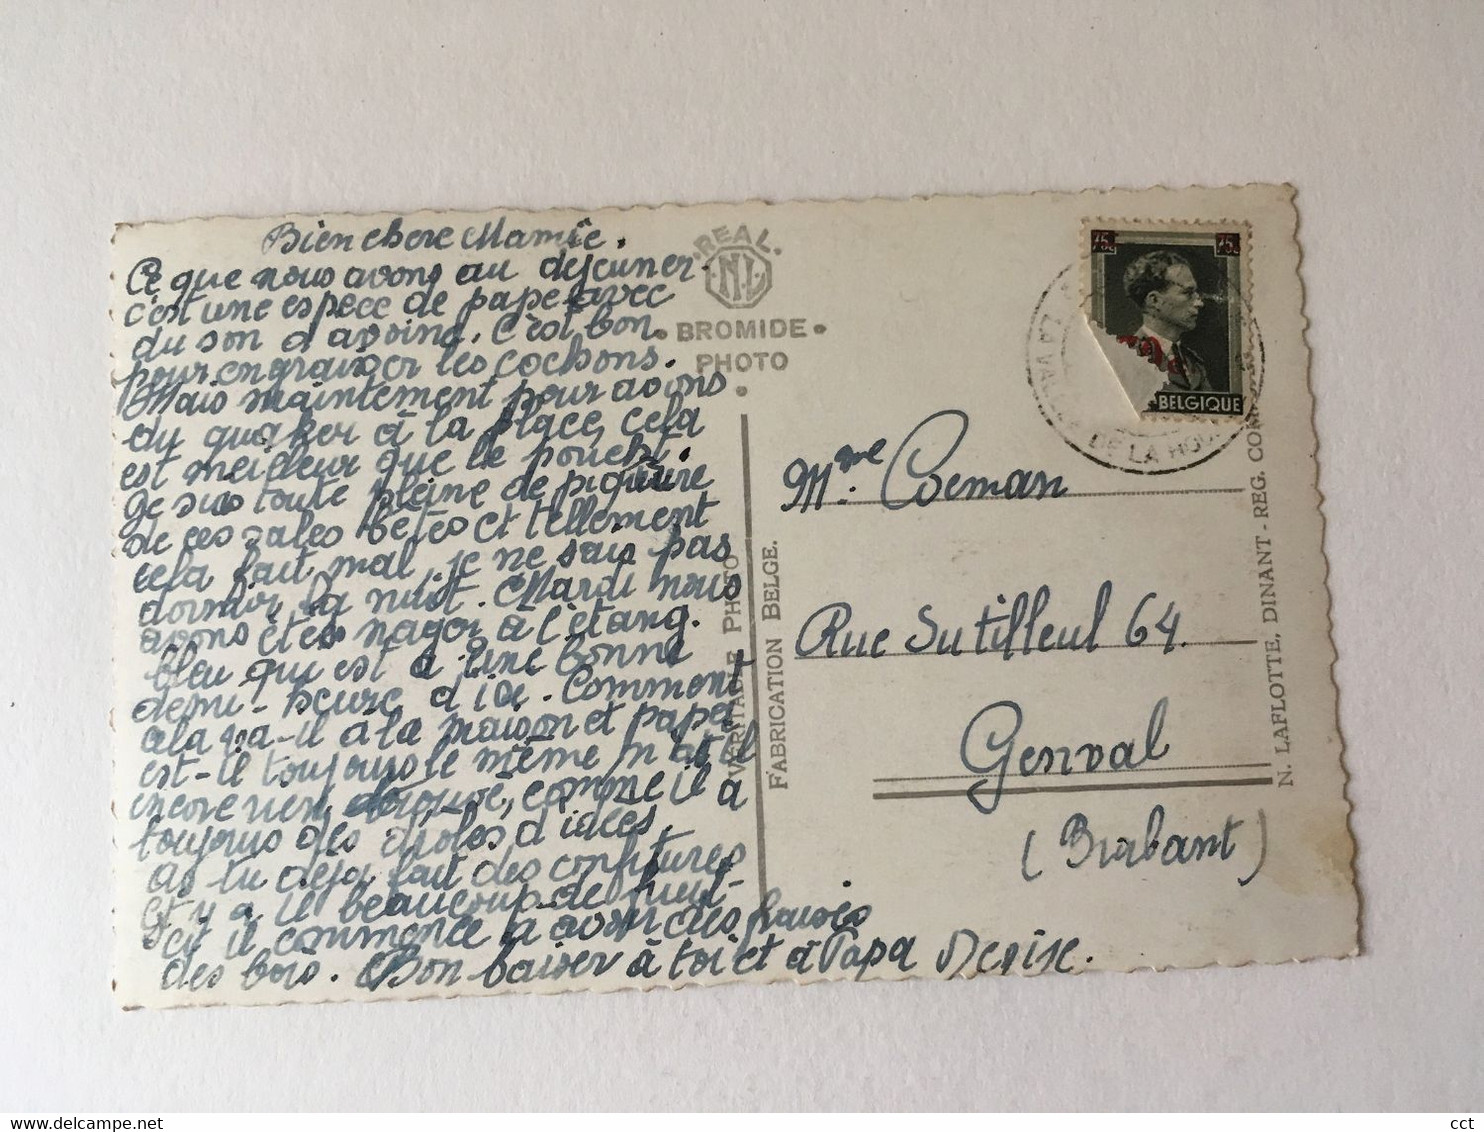 Bien chere Mamie.
Ce que nous avons au dejeuner
c'est une espece de pape avec
du son d'avoine. C'est bon
pour engraisser les cochons.
Mais maintement pour avons
du quaker à la place, cela
est meilleur que le
Je suis toute pleine de piqûre
de ces sales bêtes et tellement
cela fait mal, je ne sais pas
dormir la nuit. Mardi nous
avons étés nager à l'étang.
bleu qui est à une bonne
demi-heure d'ici. Comment
cela va-il à la maison et papa
est-il toujours le même n'at'il
encore rien, comme il a
toujours des droles d'idees
as tu deja fait des confitures
Et y a il beaucoup de fruit-
ici il commence a avoir des fraises
des bois. Bon baiser à toi et à Papa Denise.
REAL
N.L.
BROMIDE
PHOTO
VÉRITABLE PHOTO
FABRICATION BELGE.
75c 75c
BELGIQUE
DE LA
Mme. Coeman
Rue Sutilleul 64.
Genval
(Brabant)
N. LAFLOTTE, DINANT - REG. COM
cct